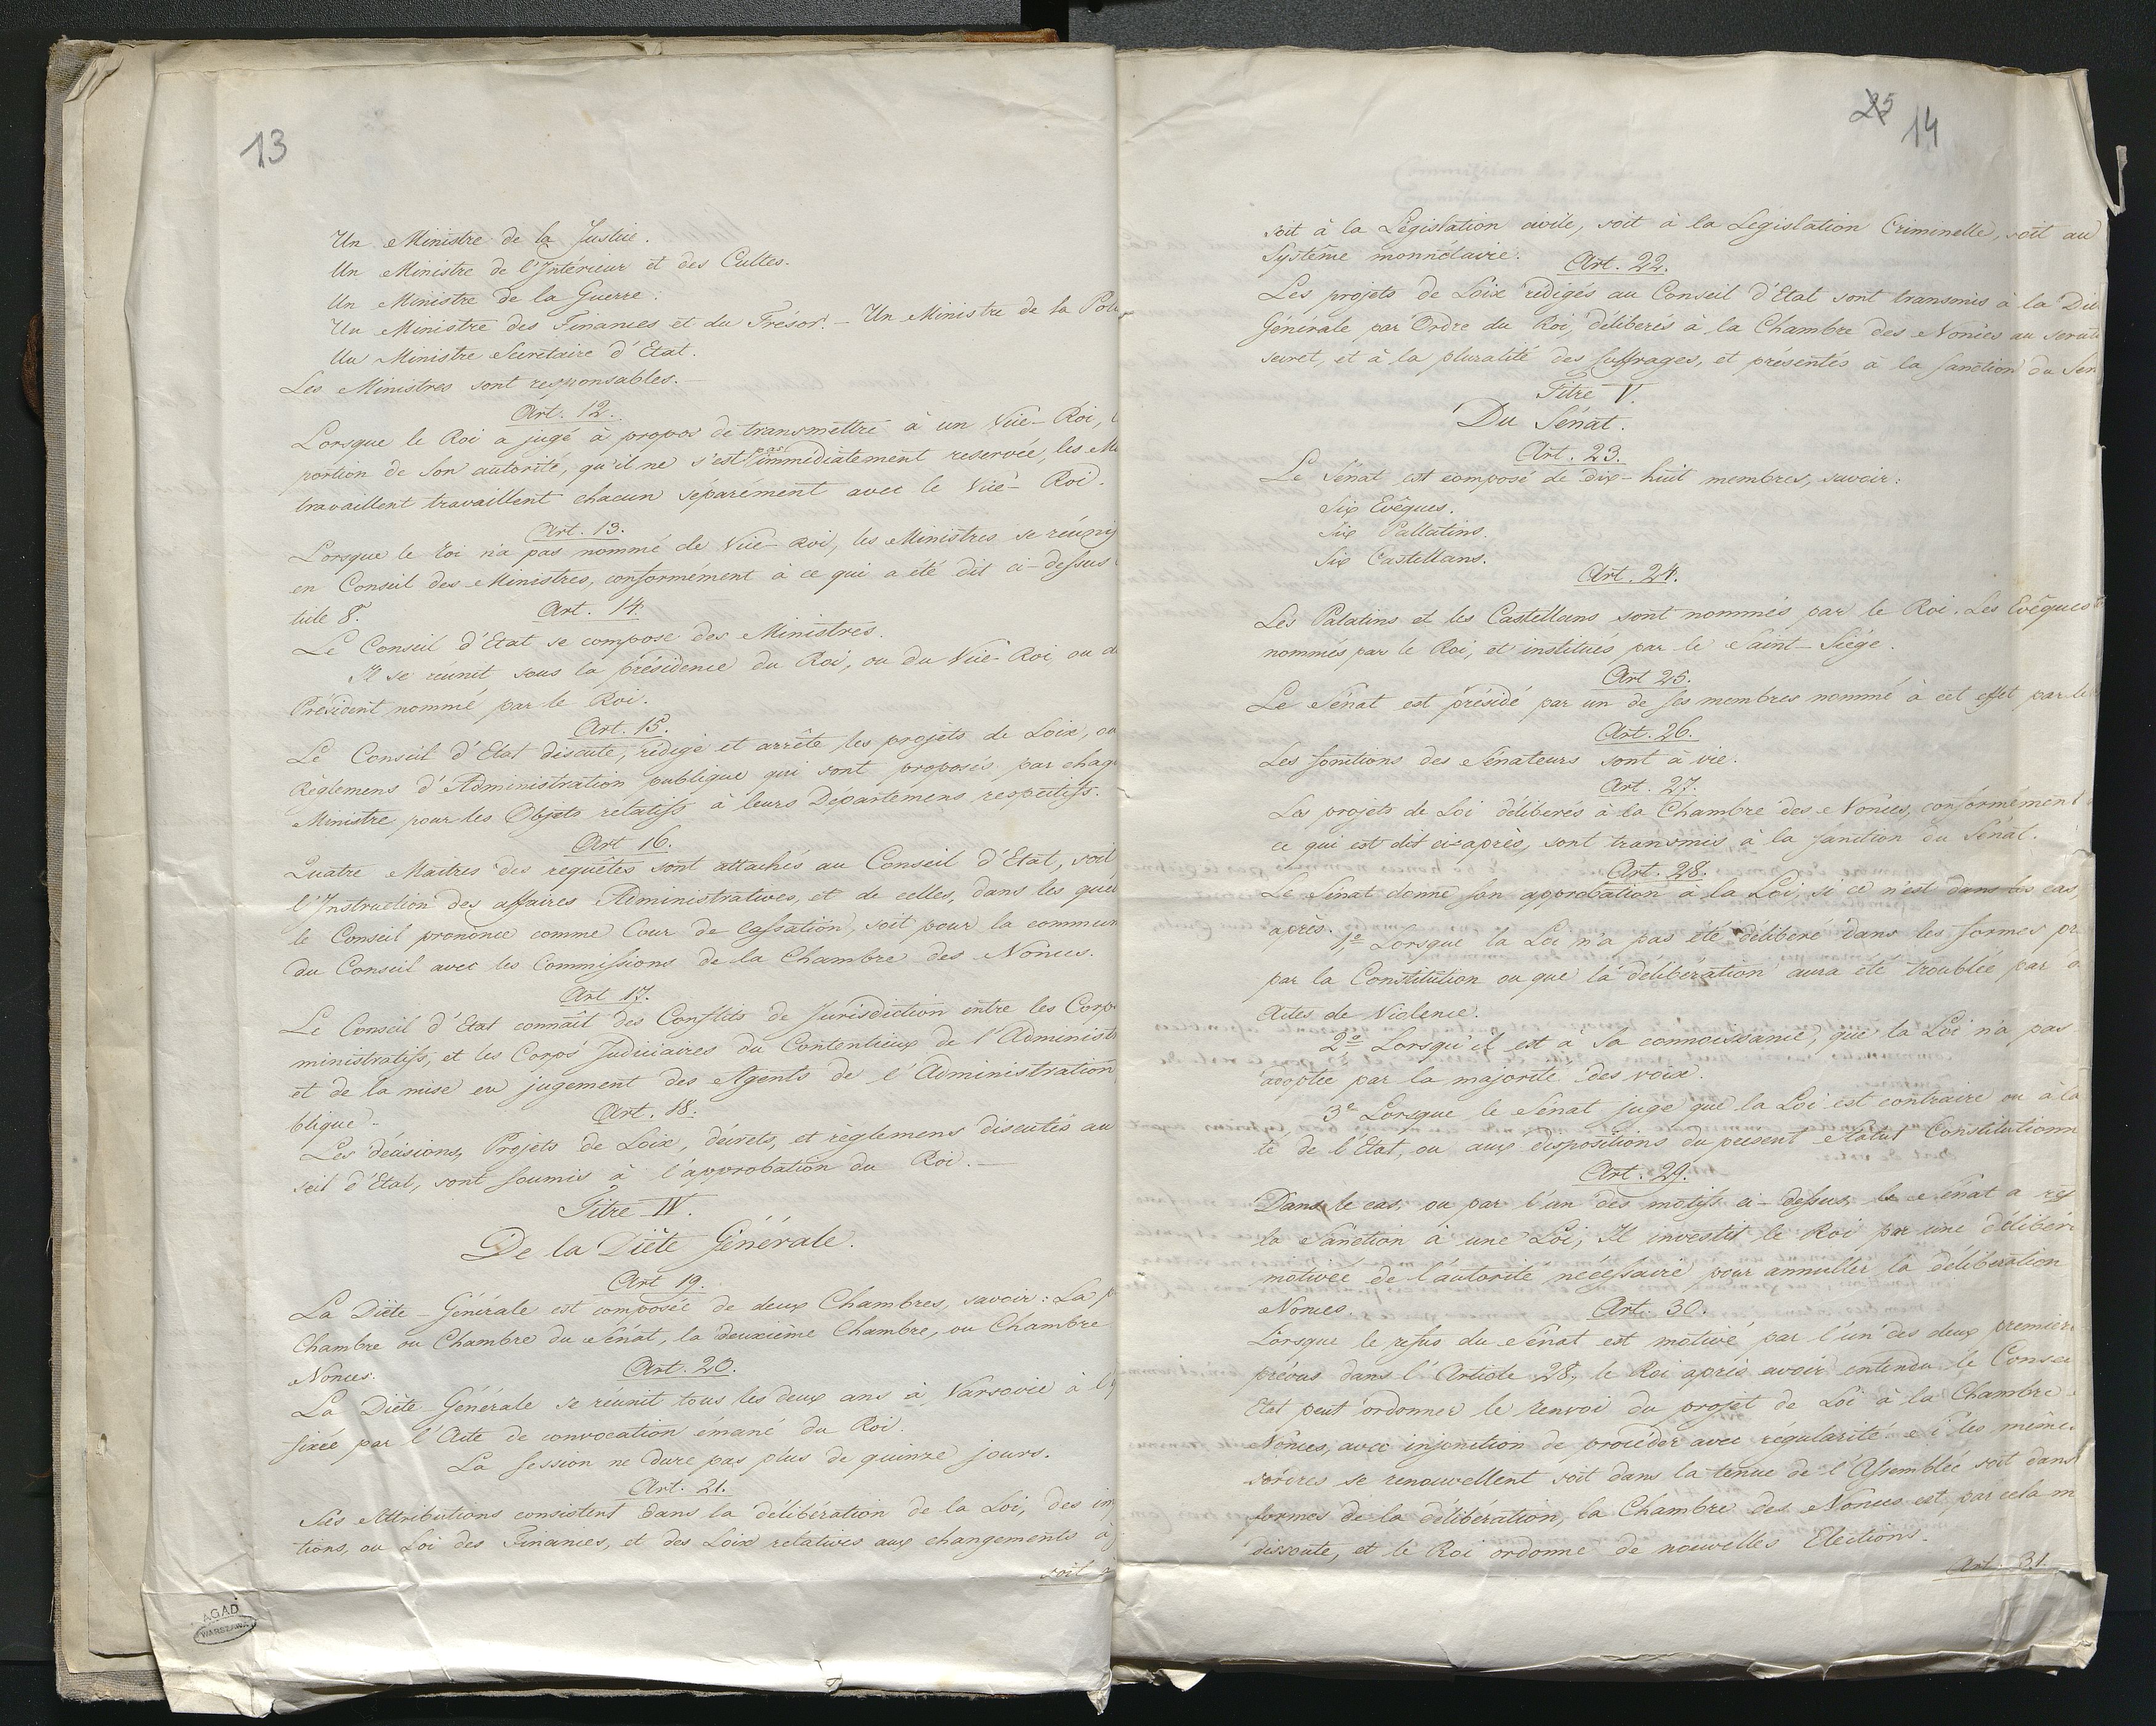 13
Un Ministre de la Justice.
Un Ministre de l'Intérieur et des Cultes.
Un Ministre de la Guerre.
Un Ministre des Finances et du Trésor. – Un Ministre de la Poli
Un Ministre Secrétaire d'Etat.
Les Ministres sont responsables. –
Art. 12.
Lorsque le Roi a jugé à propos de transmettre à un Vice-Roi,
portion de son autorité, qu'il ne s'est pas immédiatement reservée, les Mi
travaillent travaillent chacun séparément avec le Vice-Roi.
Art. 13.
Lorsque le roi n'a pas nommé de Vice-roi, les Ministres se réunis
en Conseil des Ministres, conformément à ce qui a été dit ci-dessus
ticle 8.
Art. 14.
Le Conseil d'Etat se compose des Ministres.
Il se réunit sous la présidence du Roi, ou du Vice-Roi ou d
Président nommé par le Roi.
Art. 15.
Le Conseil d'Etat discute, rédige et arrête les projets de Loix, ou
Règlemens d'Administration publique qui sont proposés par chaq
Ministre pour les Objets relatifs à leurs Départemens respectifs.
Art 16.
Quatre Maitres des requêtes sont attachés au Conseil d'Etat, soit
l'Instruction des affaires Administratives, et de celles, dans les quel
le Conseil prononce comme Cour de Cassation, soit pour la commun
du Conseil avec les Commissions de la Chambre des Nonces.
Art 17.
Le Conseil d'Etat connaît des Conflits de Jurisdiction entre les Corps
ministratifs, et les Corps Judiciaires du Contentieux de l'Administ
et de la mise en jugement des Agents de l'Administration
blique.
Art. 18.
Les décisions, Projets de Loix, décrets, et règlemens discutés au
seil d'Etat, sont soumis à l'approbation du Roi. –
Titre IV.
De la Diète Générale.
Art 19.
La Diète-Générale est composée de deux Chambres, savoir: La p
Chambre ou Chambre du Sénat, la deuxième Chambre, ou Chambre
Nonces.
Art. 20.
La Diète-Générale se réunit tous les deux ans à Varsovie à l'
fixée par l'Acte de convocation émané du Roi.
La session ne dure pas plus de quinze jours.
Art. 21.
Ses Attributions consistent dans la délibération de la Loi, des im
tions, ou Loi des Finances, et des Loix relatives aux changements à
soit
AGAD
WARSZAWA
25
14
soit à la Législation civile, soit à la Législation Criminelle, soit au
Système monnétaire.
Art. 22.
Les projets de Loix rédigés au Conseil d'Etat sont transmis à la Diè
Générale par Ordre du Roi, délibérés à la Chambre des Nonces au scruti
secret, et à la pluralité des suffrages, et présentés à la sanction du Sén
Titre V.
Du Sénat.
Art. 23.
Le Sénat est composé de dix-huit membres, savoir:
Six Evêques.
Six Pallatins.
Six Castellans.
Art. 24.
Les Palatins et les Castellans sont nommés par le Roi. Les Evêques
nommés par le Roi, et institués par le Saint-Siège.
Art 25.
Le Sénat est présidé par un de ses membres nommé à cet effet par le
Art. 26.
Les fonctions des Sénateurs sont à vie.
Art. 27.
Les projets de Loi délibérés à la Chambre des Nonces, conformément
ce qui est dit ci-après, sont transmis à la sanction du Sénat.
Art. 28.
Le Sénat donne son approbation à la Loi, si ce n'est dans les cas,
après.
1º Lorsque la Loi n'a pas été délibéré dans les formes pr
par la Constitution ou que la délibération aura été troublée par
Actes de Violence.
2º Lorsqu'il est à sa connoissance, que la Loi n'a pas
adoptée par la majorité des voix.
3º Lorsque le Sénat juge que la Loi est contraire ou à la
té de l'Etat, ou aux dispositions du present Statut Constitutionn
Art. 29.
Dans le cas, ou par l'un des motifs ci-dessus, le Sénat a ref
la Sanction à une Loi, Il investit le Roi par une délibér
motivée de l'autorité nécessaire pour annuller la délibération
Nonces.
Art. 30.
Lorsque le refus du Sénat est motivé par l'un des deux premier
prévus dans l'Article 28, le Roi après avoir entendu le Consei
Etat peut ordonner le renvoi du projet de Loi à la Chambre
Nonces, avec injonction de procéder avec régularité. Si les mêmes
sordres se renouvellent soit dans la tenue de l'Assemblée soit dans
formes de la délibération, la Chambre des Nonces est, par cela m
dissoute, et le Roi ordonne de nouvelles Elections.
Art. 31.